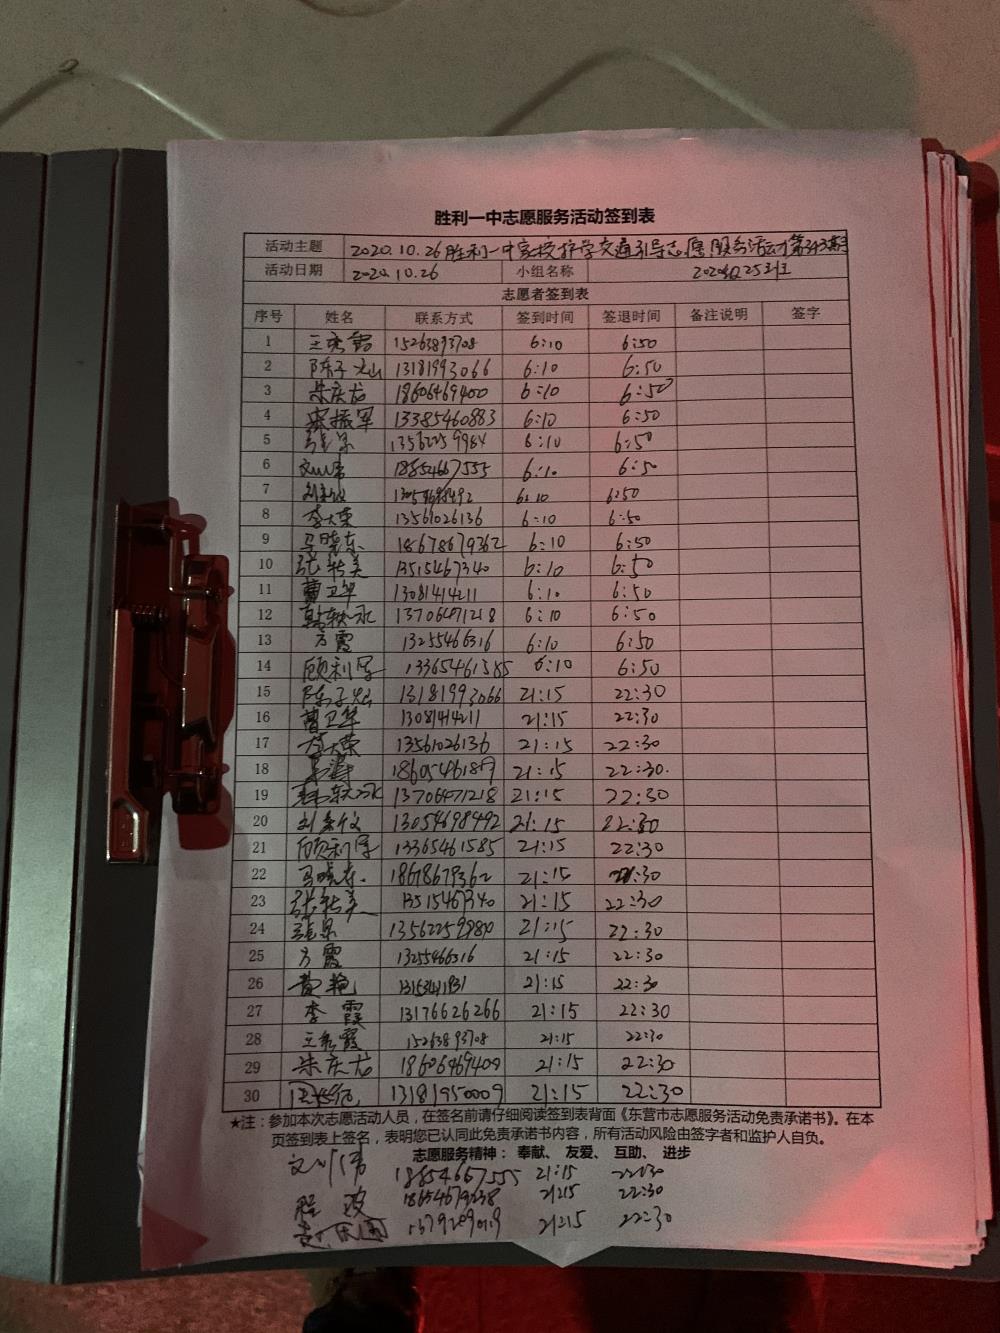 胜利一中志愿服务活动签到表
活动主题 2020.10.26胜利一中家校护学交通引导志愿服务活动第343期
活动日期 2020.10.26 小组名称
志愿者签到表
序号 姓名 联系方式 签到时间 签退时间 备注说明 签字
1 15263893708 6:10 6:50
2 13181993066 6:10 6:50
3 朱庆龙 18606469400 6:10 6:50
4 振军 13385460883 6:10 6:50
5 6:10 6:50
6 18854667555 6:10 6:50
7 6:10 6:50
8 李大荣 13561026136 6:10 6:50
9 马晓东 18678679362 6:10 6:50
10 美 13515467340 6:10 6:50
11 曹卫华 13081414211 6:10 6:50
12 13706471218 6:10 6:50
13 方霞 13255466316 6:10 6:50
14 顾利军 13365461585 6:10 6:50
15 13181993066 21:15 22:30
16 曹卫华 13081414211 21:15 22:30
17 李大荣 13561026136 21:15 22:30
18 21:15 22:30.
19 13706471218 21:15 22:30
20 13054698492 21:15 22:30
21 顾利军 13365461585 21:15 22:30
22 马晓东. 18678679362 21:15 :30
23 美 13515467340 21:15 22:30
24 21:15 22:30
25 方霞 13255466316 21:15 22:30
26 黄艳 21:15 22:30
27 李霞 13176626266 21:15 22:30
28 霞 15263893708 21:15 22:30
29 朱庆龙 18606469409 21:15 22:30
30 13181950009 21:15 22:30
★注：参加本次志愿活动人员，在签名前请仔细阅读签到表背面《东营市志愿服务活动免责承诺书》。在本
页签到表上签名，表明您已认同此免责承诺书内容，所有活动风险由签字者和监护人自负。
志愿服务精神： 奉献、 友爱、 互助、 进步
18854667555 21:15 22:30
程波 21:15 22:30
21:15 22:30